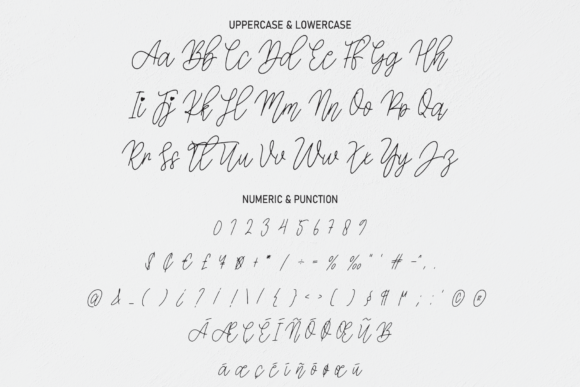 UPPERCASE & LOWERCASE
Aa Bb Cc Dd Ee Ff Gg Hh
Ii Jj Kk Ll Mm Nn Oo Pp Qq
Rr Ss Tt Uu Vv Ww Xx Yy Zz
NUMERIC & PUNCTION
0 1 2 3 4 5 6 7 8 9
$ ¢ € £ ¥ ¤ + * / ÷ = % ‰ " ' # - " , .
@ & _ ( ) ¿ ? i / ! \ | / { } < > ( ) § ¶ µ ; : ' © ®
Á Æ Ç É Í Ñ Ó Ø Œ Ü ß
á æ ç é í ñ ó ø œ ü